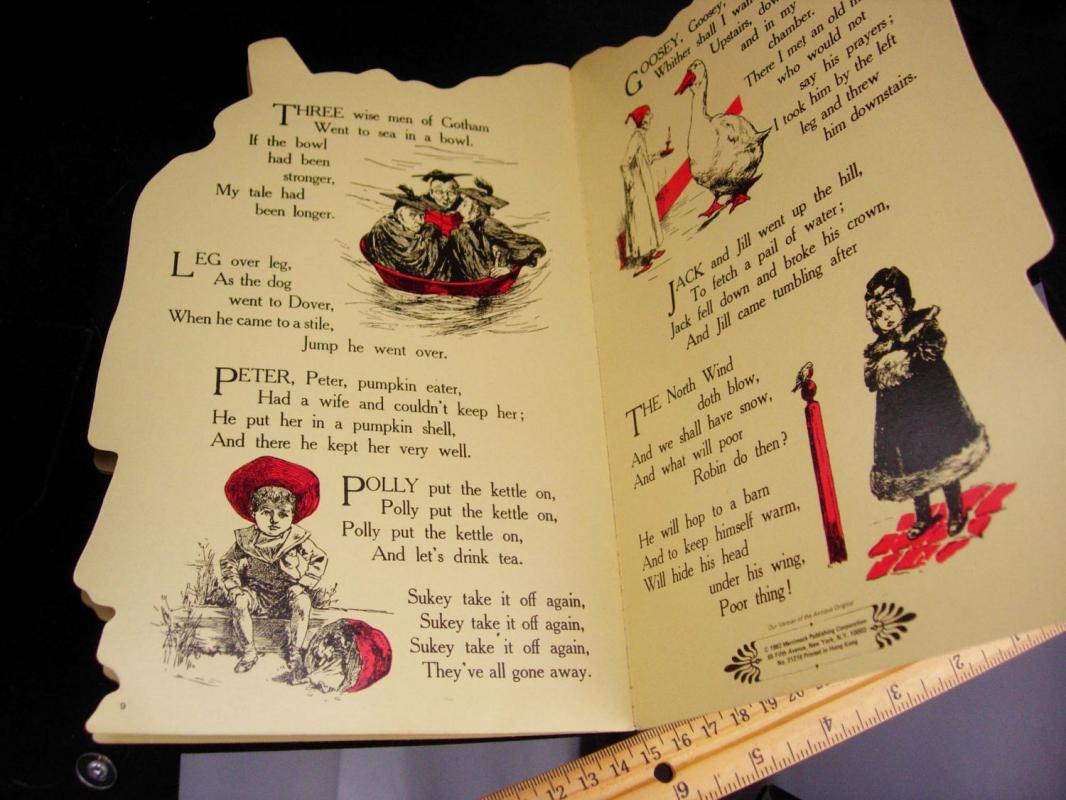 THREE wise men of Gotham
Went to sea in a bowl.
If the bowl
had been
stronger,
My tale had
been longer.
LEG over leg,
As the dog
went to Dover,
When he came to a stile,
Jump he went over.
PETER, Peter, pumpkin eater,
Had a wife and couldn't keep her;
He put her in a pumpkin shell,
And there he kept her very well.
POLLY put the kettle on,
Polly put the kettle on,
Polly put the kettle on,
And let's drink tea.
Sukey take it off again,
Sukey take it off again,
Sukey take it off again,
They've all gone away.
9
GOOSEY, Goosey,
Whither shall I
Upstairs,
and in my
chamber.
There I met an old
who would not
say his prayers;
I took him by the left
leg and threw
him downstairs.
JACK and Jill went up the hill,
To fetch a pail of water;
Jack fell down and broke his crown,
And Jill came tumbling after
THE North Wind
doth blow,
And we shall have snow,
And what will poor
Robin do then?
He will hop to a barn
And to keep himself warm,
Will hide his head
under his wing,
Poor thing!
Our Version of the Antique Original
© 1982 Merrimack Publishing Corporation
85 Fifth Avenue, New York, N.Y. 10003
No. 21216 Printed in Hong Kong
12 13 14 15 16 17 18 19 20
6 5 4 3 2